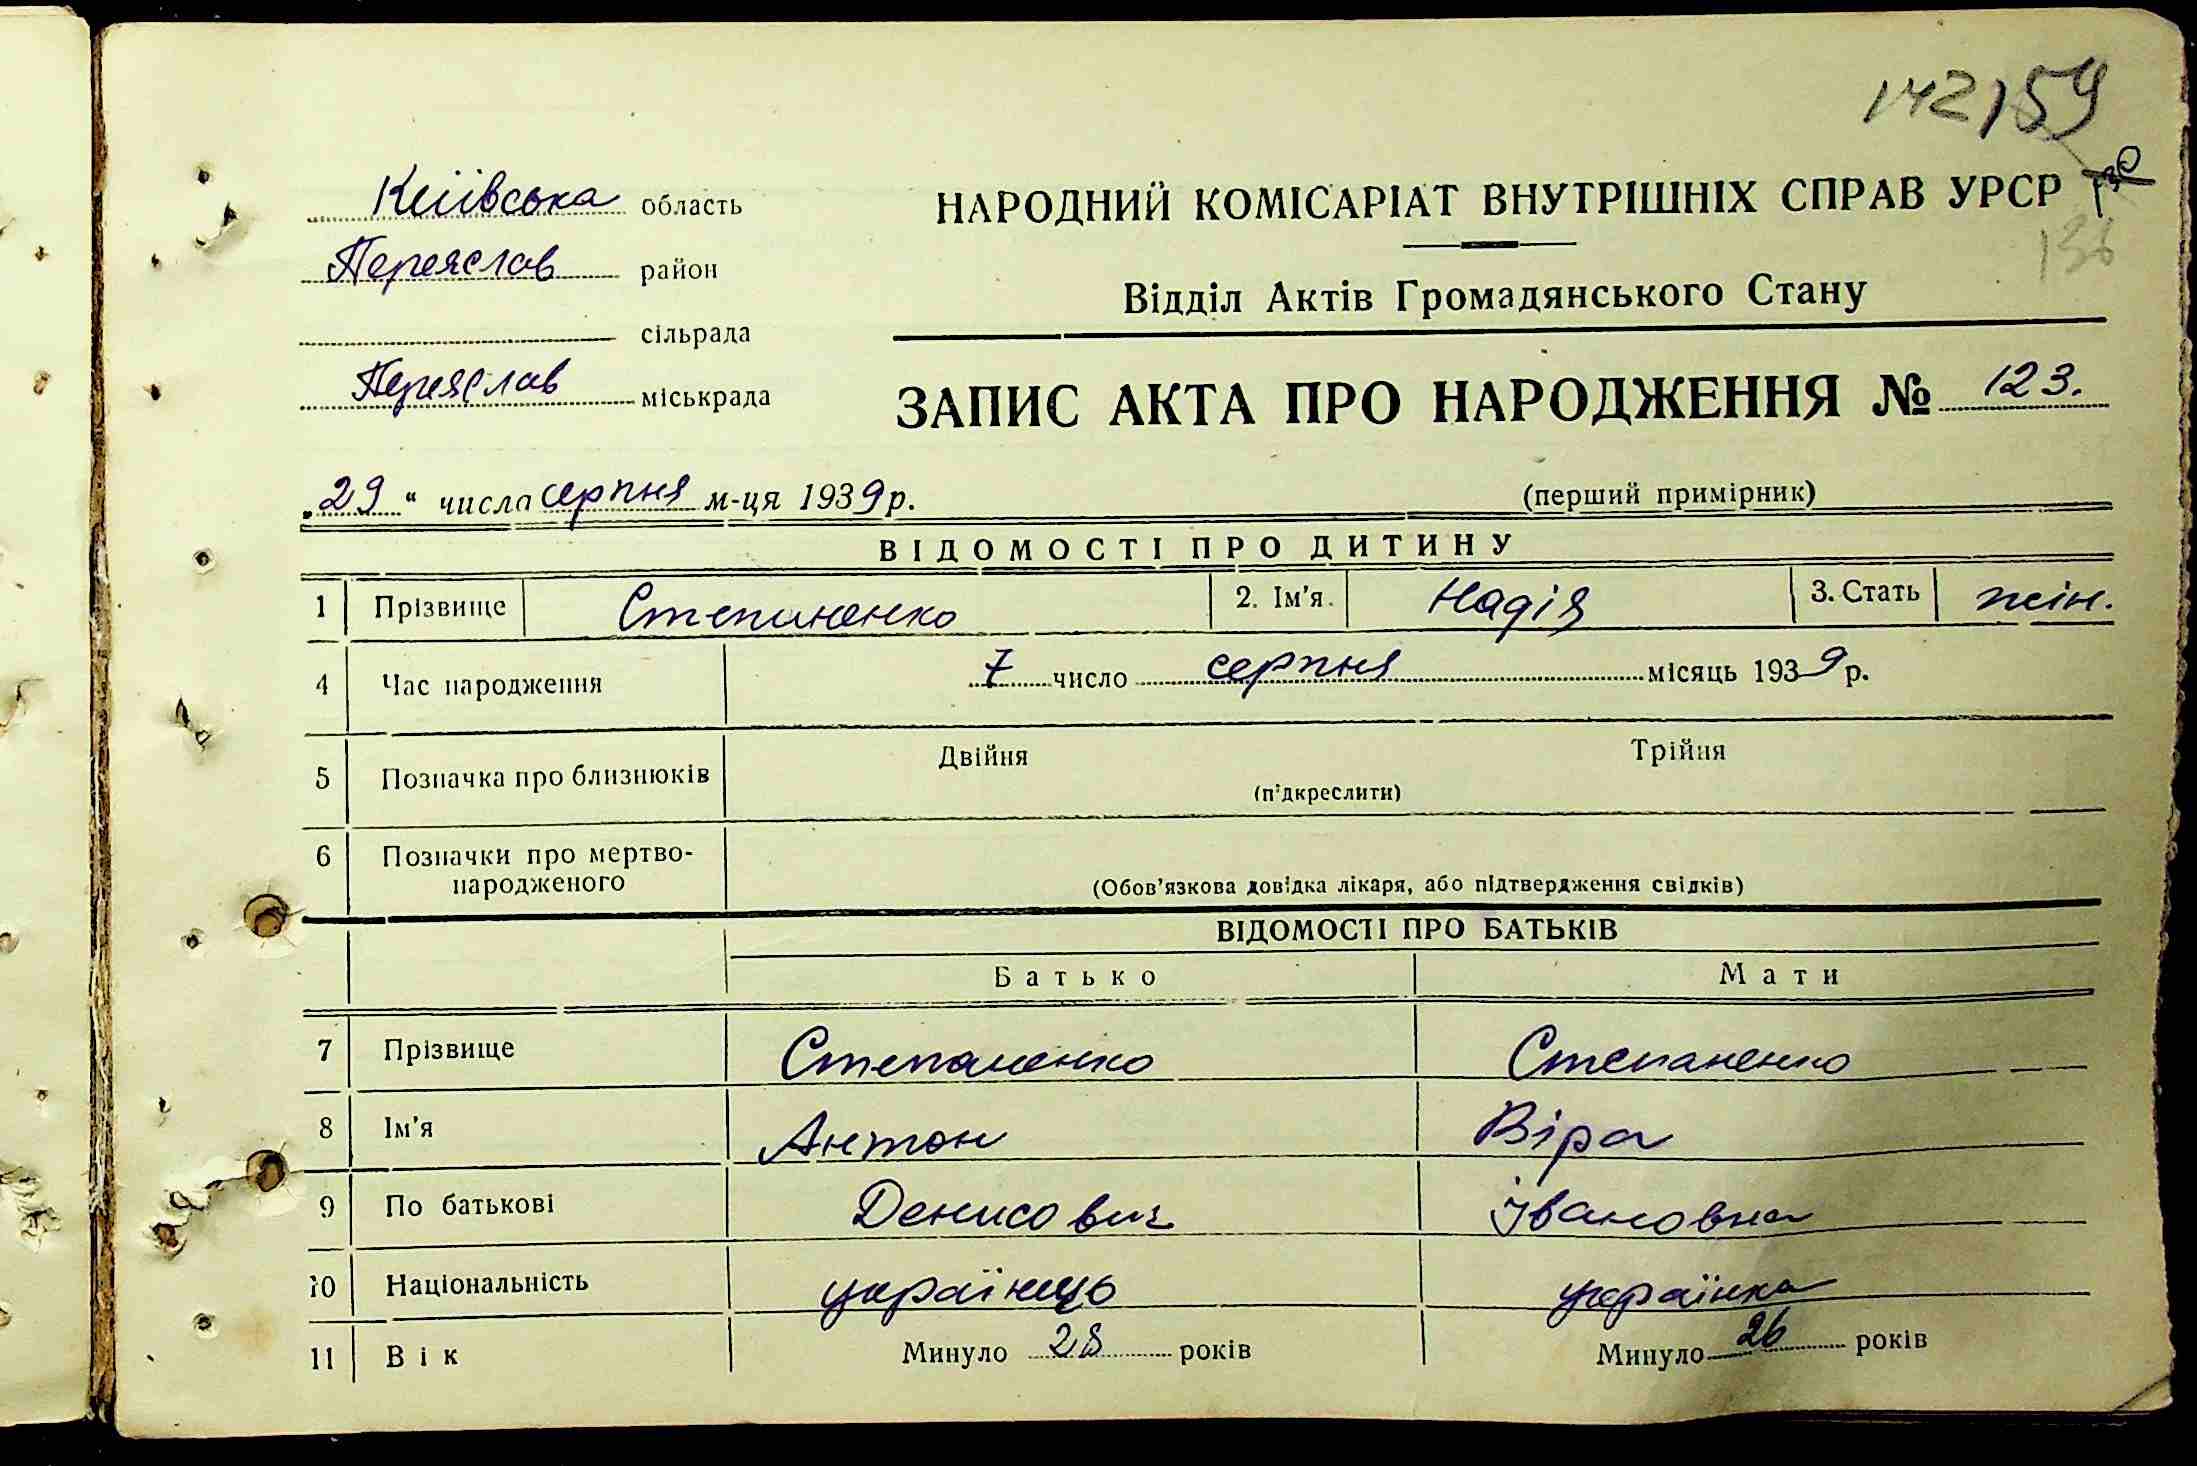 142 159
Київська область
НАРОДНИЙ КОМІСАРІАТ ВНУТРІШНІХ СПРАВ УРСР 130
136
Переяслав район
Відділ Актів Громадянського Стану
сільрада
Переяслав міськрада
ЗАПИС АКТА ПРО НАРОДЖЕННЯ № 123.
„29“ числа серпня м-ця 1939 р.
(перший примірник)
ВІДОМОСТІ ПРО ДИТИНУ
1 Прізвище Степаненко 2. Ім'я. Надія 3. Стать жін.
4 Час народження 7 число серпня місяць 1939 р.
5 Позначка про близнюків Двійня Трійня
(підкреслити)
6 Позначки про мертво-
народженого (Обов'язкова довідка лікаря, або підтвердження свідків)
ВІДОМОСТІ ПРО БАТЬКІВ
Батько Мати
7 Прізвище Степаненко Степаненко
8 Ім'я Антон Віра
9 По батькові Денисович Івановна
10 Національність українець українка
11 Вік Минуло 28 років Минуло 26 років